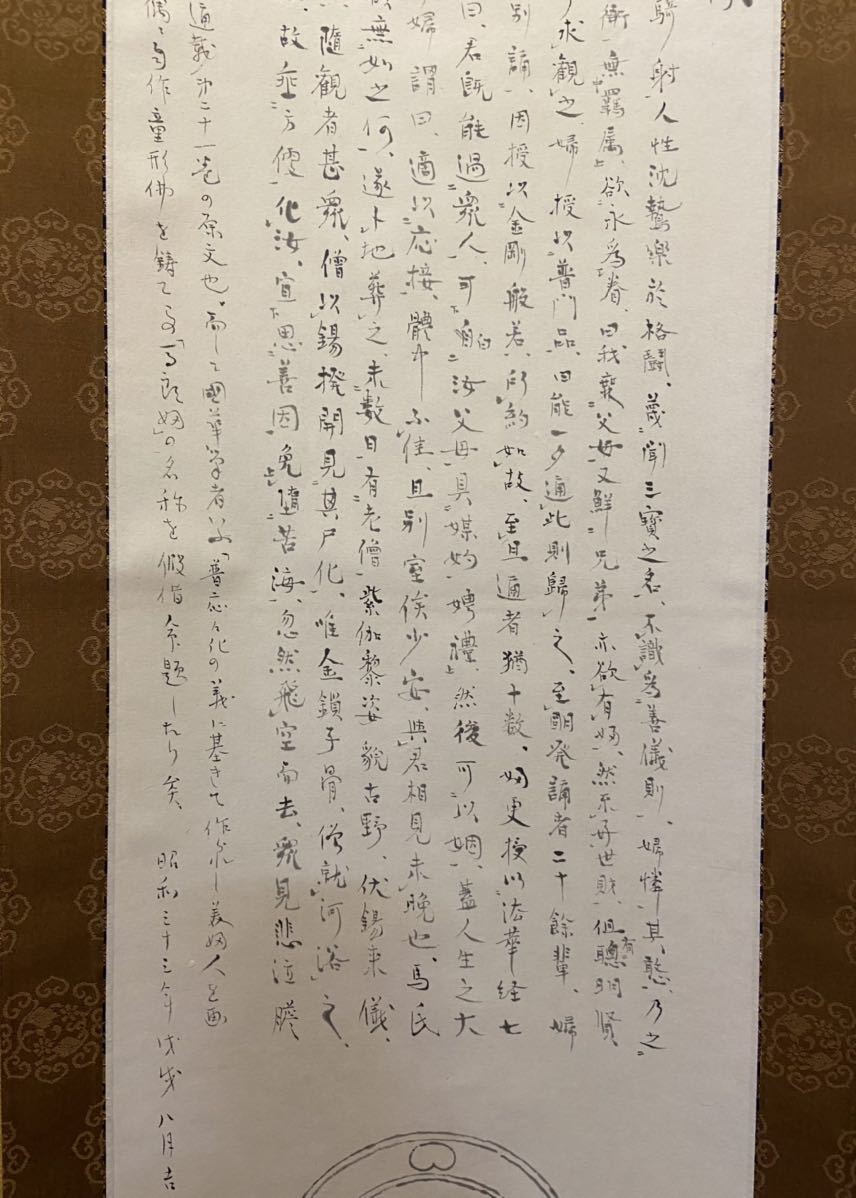 騎射人性沈鷙楽於格闘、蔑聞三寶之名、不識為善儀則、婦憐其憨、乃之
衝無羈属、欲永為眷、曰我衰父母又鮮兄弟、亦欲有帰、然不好世財、但有聰明賢
求観之、婦授以普門品、曰能一夕通此則歸之、至明発誦者二十餘輩、婦
別誦、因授以金剛般若、所約如故、至旦通者猶十数、婦更授以法華経七
曰、君既能過衆人、可自白汝父母具媒妁娉禮、然後可以姻、蓋人生之大
婦謂曰、適以応接、體中不佳、且別室俟少安、與君相見未晩也、馬氏
無如之何、遂卜地葬之、未數日有老僧紫伽黎姿貌古野、伏錫来儀、
隨觀者甚衆、僧以錫撥開見其尸化、唯金鎖子骨、僧就河浴之、
故垂方便化汝、宜思善因免堕苦海、忽然飛空而去、衆見悲泣瞻
通載第二十一巻の原文也。而して國華学者以「普応々化の義に基きて作成し美婦人を画
偶々自作童形佛を鋳て「馬郎婦」の名称を假借命題したり矣、 昭和三十三年戊戌八月吉